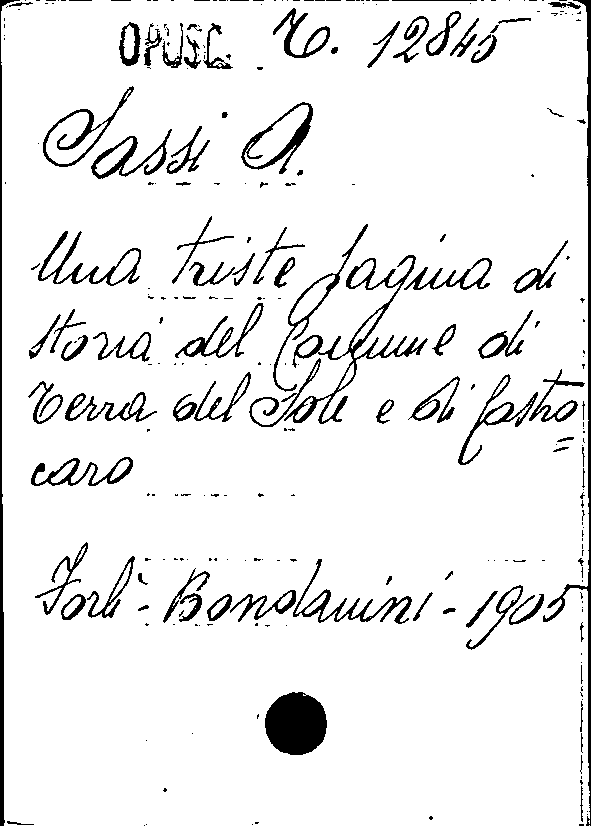 OPUSC. T. 12845
Sassi A.
Una triste pagina di
storia del Comune di
Terra del Sole e di Castro=
caro
Forlì - Bondanini - 1905